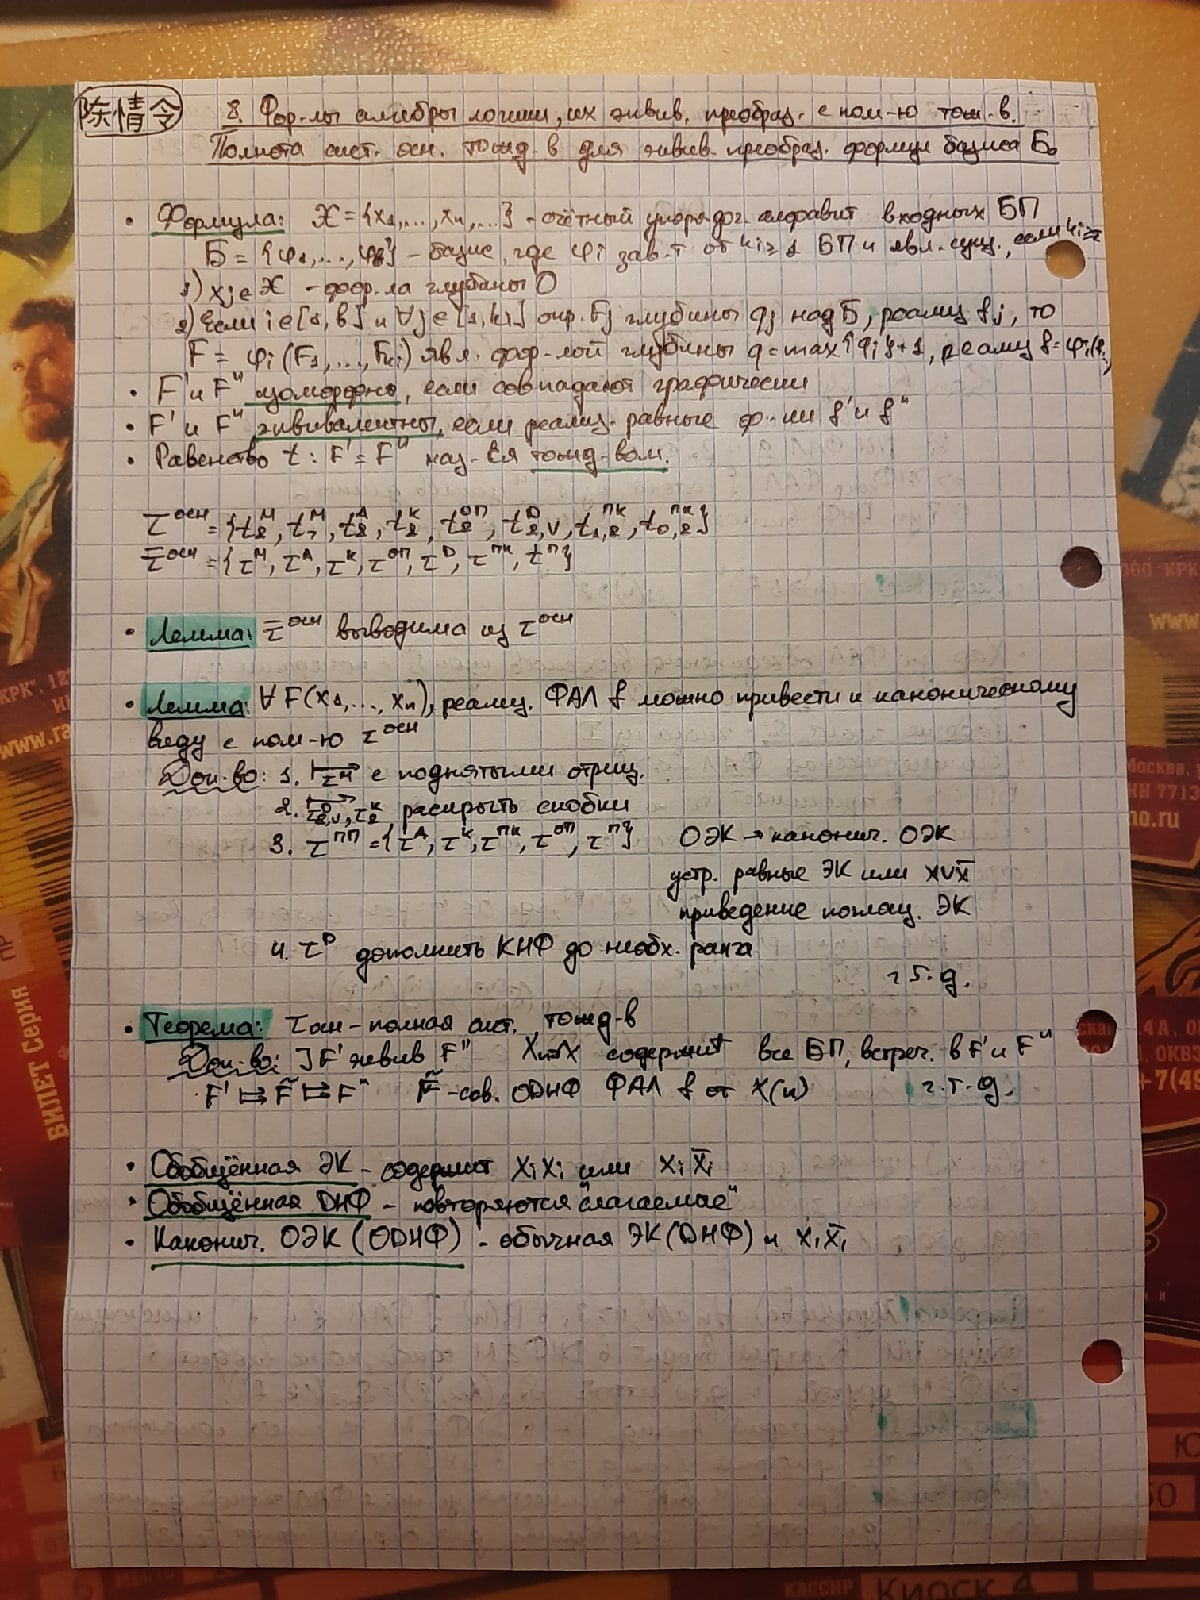 陈情令
8. Фор-лы алгебры логики, их эквив. преобраз. с пом-ю тожд-в.
Полнота сист. осн. тожд-в для эквив. преобраз. формул базиса Б₀
• Формула: X = {x₁,..., xₙ,...} - счётный упорядоч. алфавит входных БП
Б = {φ₁,..., φ_б} - базис, где φᵢ зав-т от kᵢ ≥ 1 БП и явл. сущ., если kᵢ ≥
1) xⱼ ∈ X - фор-ла глубины 0
2) Если i ∈ [1, б] и ∀j ∈ [1, kᵢ] опр. Fⱼ глубины qⱼ над Б, реализ fⱼ, то
F = φᵢ (F₁,..., F_kᵢ) явл. фор-лой глубины q = max{qᵢ} + 1, реализ f = φᵢ(f
• F' и F'' изоморфны, если совпадают графически
• F' и F'' эквивалентны, если реализ. равные ф-ии f' и f''
• Равенство t : F' = F'' наз-ся тожд-вом.
τ^осн = {t_&^М, t_¬^М, t_&^А, t_&^К, t_&^ОП, t_&,∨^D, t_1,&^ПК, t_0,&^ПК}
τ̄^осн = {τ^М, τ^А, τ^К, τ^ОП, τ^D, τ^ПК, t^П}
• Лемма: τ̄^осн выводима из τ^осн
• Лемма: ∀ F(x₁,..., xₙ), реализ. ФАЛ f можно привести к каноническому
виду с пом-ю τ^осн
Док-во: 1. ⊢τ^М→ с поднятыми отриц.
2. ⊢t_&,∨^D, t_&^К→ раскрыть скобки
3. τ^ПП = {τ^А, τ^К, τ^ПК, τ^ОП, τ^П} ОЭК → канонич. ОЭК
устр. равные ЭК или x∨x̄
приведение поглощ. ЭК
4. τ^D дополнить КНФ до необх. ранга
ч.т.д.
• Теорема: τосн - полная сист. тожд-в
Док-во: ] F' эквив F'' содержит все БП, встреч. в F' и F''
F' ⊨ F̃ ⊨ F'' F̃ - сов. ОДНФ ФАЛ f от X(n) ч.т.д.
• Обобщённая ЭК - содержит xᵢxᵢ или xᵢx̄ᵢ
• Обобщённая ДНФ - повторяются "слагаемае"
• Канонич. ОЭК (ОДНФ) - обычная ЭК (ДНФ) и x₁x̄₁
БИЛЕТ Серия
www.
КАССИР
Киоск 4